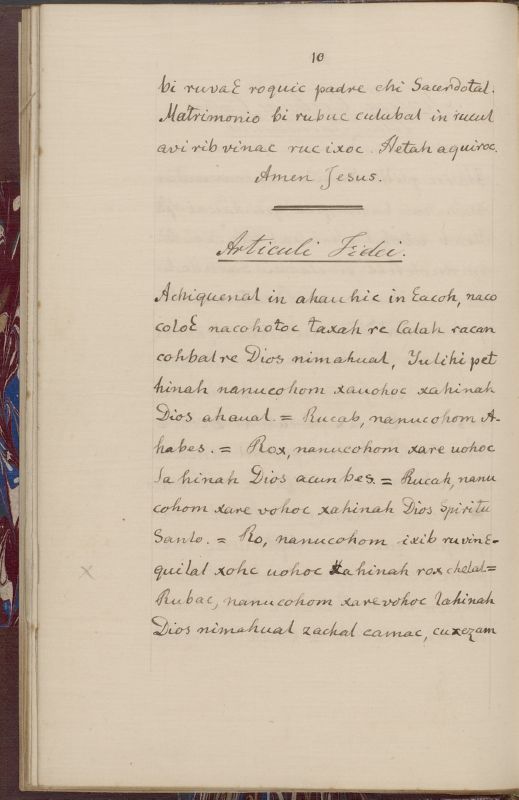 10
bi ruvaƐ roquic padre chi Sacerdotal.
Matrimonio bi rubuc culubal in rucul
avirib vinac ruc ixoc. Hetah aquiroc.
Amen Jesus.
Articuli Fidei.
Achiquenal in ahau hic in Ɛacoh, naco
coloƐ nacohotoc taxah re Calah racan
cohbal re Dios nimahual, Yulihi pet
hinah nanucohom xauohoc xahinah
Dios ahaual. = Rucab, nanucohom A-
habes. = Rox, nanucohom xare uohoc
la hinah Dios acunbes. = Rucah, nanu
cohom xare vohoc xahinah Dios Spiritu
Santo. = Ro, nanucohom ixib ruvinƐ-
quilal xohc uohoc xahinah rox chelal=
Rubac, nanucohom xarevohoc lahinah
Dios nimahual zachal camac, cuxezam